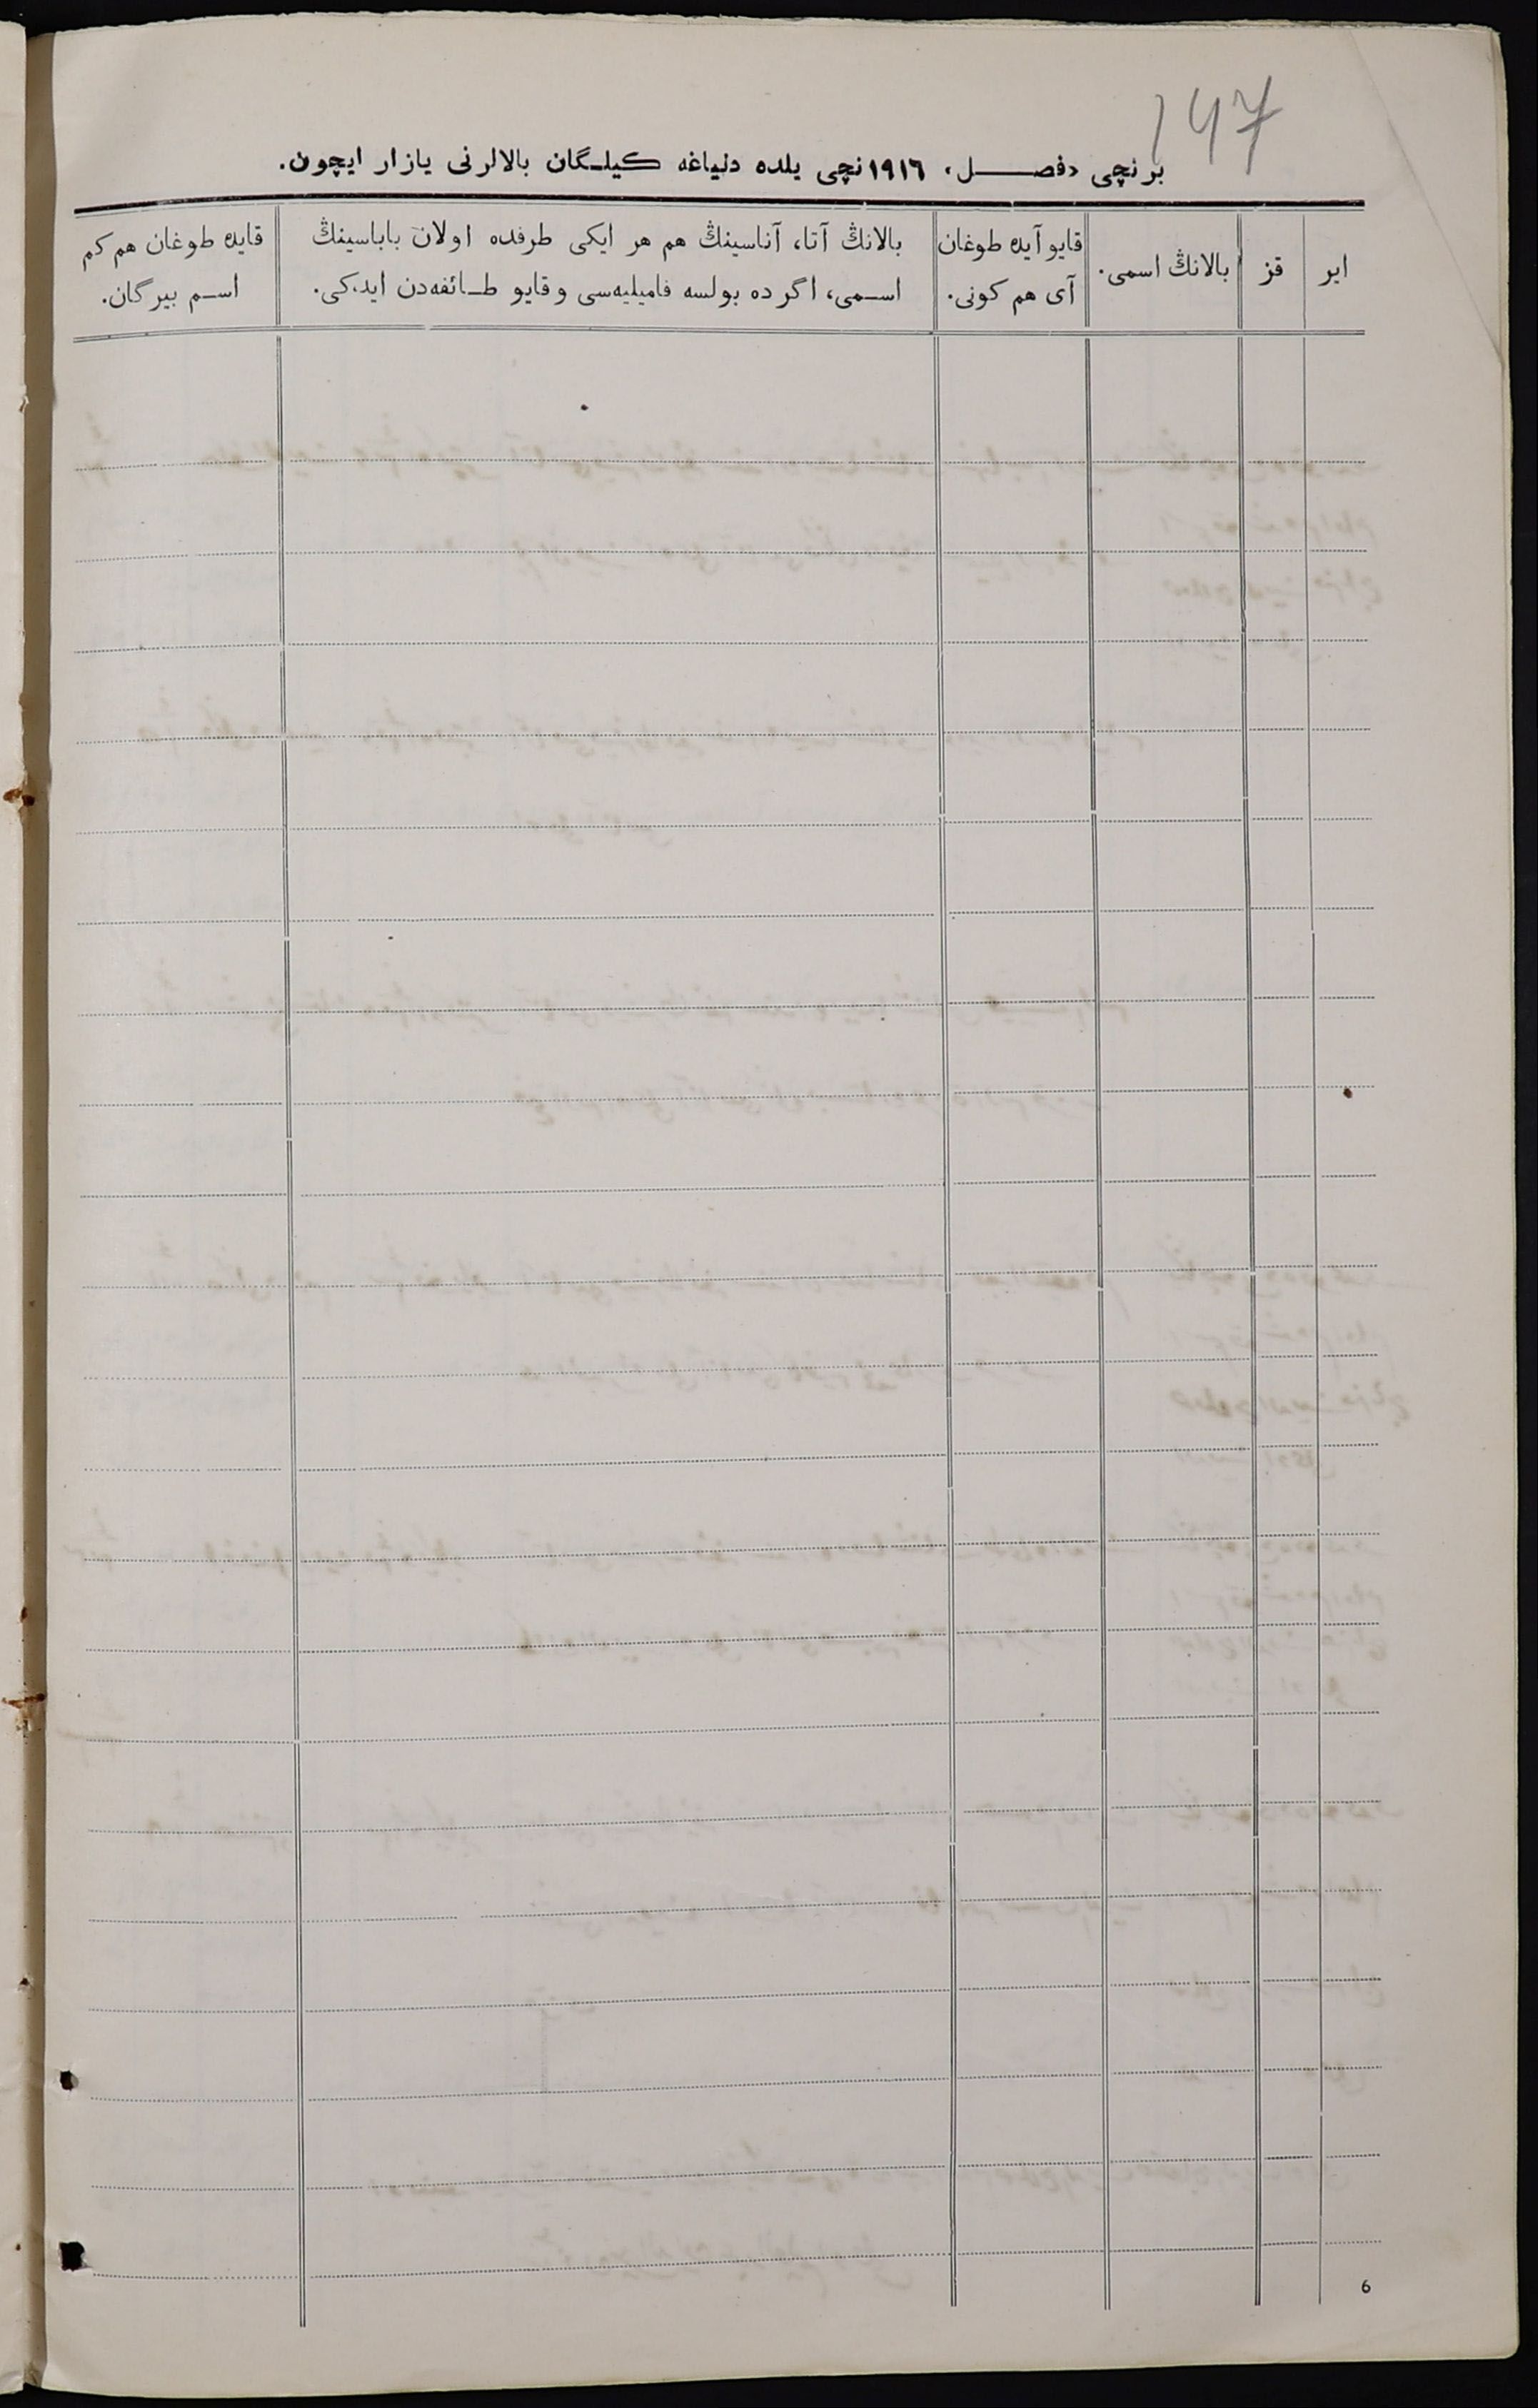 147
برنچی «فصل» ١٩١٦نچی يلده دنياغه كيلـگان بالالرنی يازار ايچون.
اير
قز
بالانڭ اسمی.
قايو آيده طوغان
آی هم كونی.
بالانڭ آتا، آناسينڭ هم هر ايكی طرفده اولان باباسينڭ
اسمی، اگر ده بولسه فاميليه‌سی و قايو طـائفه‌دن ايدكی.
قايده طوغان هم كم
اسم بيرگان.
6